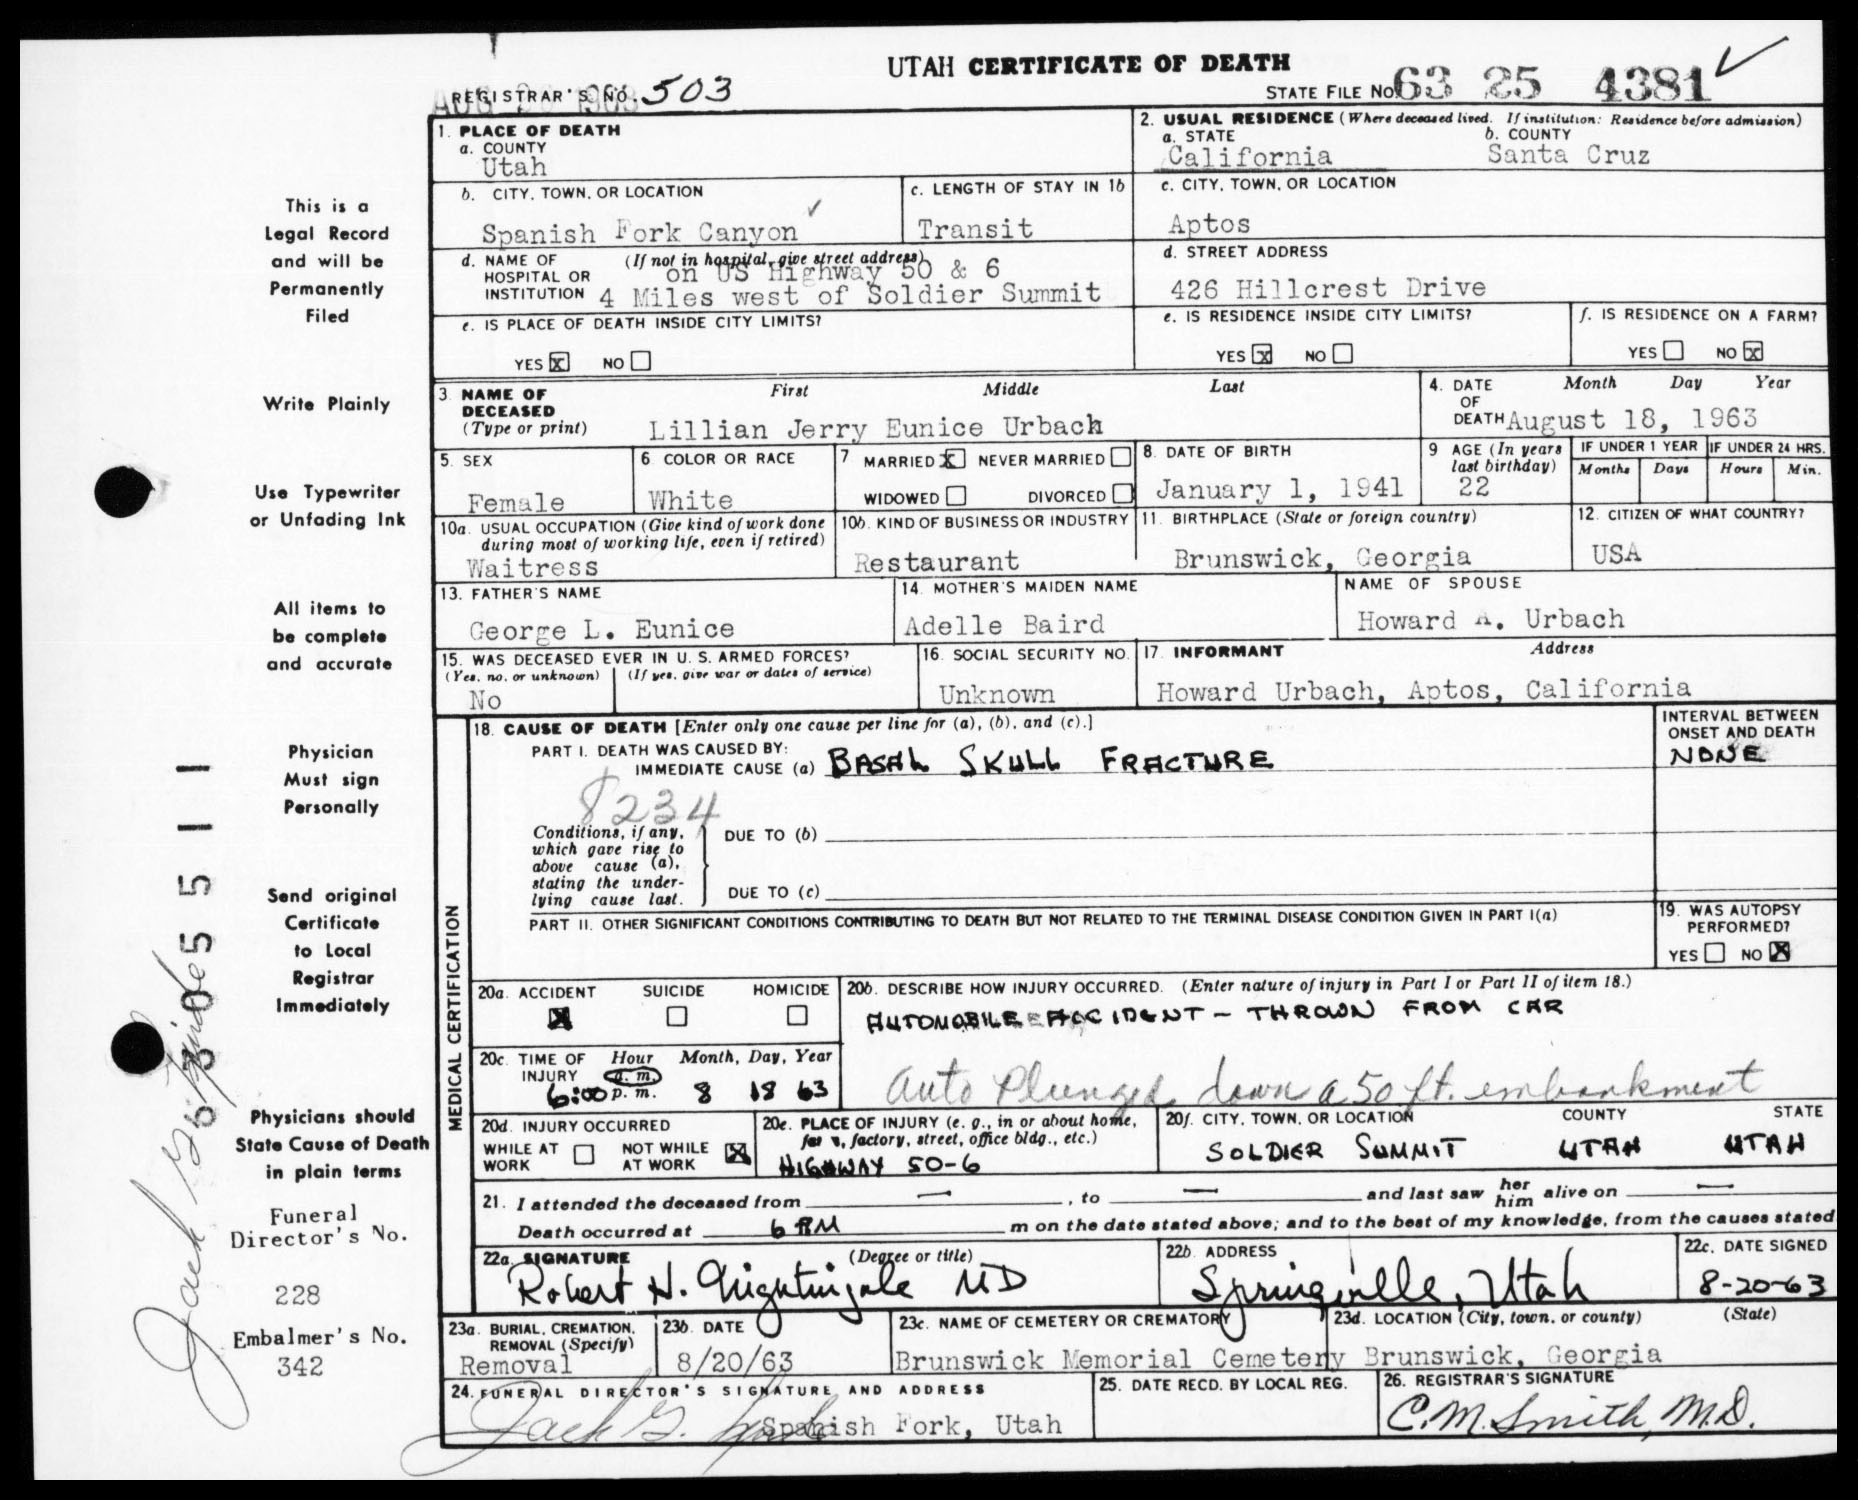 UTAH CERTIFICATE OF DEATH
REGISTRAR'S NO. 503
STATE FILE NO. 63 25 4381
1. PLACE OF DEATH
a. COUNTY
Utah
2. USUAL RESIDENCE (Where deceased lived. If institution: Residence before admission)
a. STATE b. COUNTY
California Santa Cruz
b. CITY, TOWN, OR LOCATION
Spanish Fork Canyon
c. LENGTH OF STAY IN 1b
Transit
c. CITY, TOWN, OR LOCATION
Aptos
d. NAME OF HOSPITAL OR INSTITUTION (If not in hospital, give street address)
on US Highway 50 & 6
4 Miles west of Soldier Summit
d. STREET ADDRESS
426 Hillcrest Drive
e. IS PLACE OF DEATH INSIDE CITY LIMITS?
YES X NO
e. IS RESIDENCE INSIDE CITY LIMITS?
YES X NO
f. IS RESIDENCE ON A FARM?
YES NO X
3. NAME OF DECEASED (Type or print) First Middle Last
Lillian Jerry Eunice Urbach
4. DATE OF DEATH Month Day Year
August 18, 1963
5. SEX
Female
6. COLOR OR RACE
White
7 MARRIED X NEVER MARRIED
WIDOWED DIVORCED
8. DATE OF BIRTH
January 1, 1941
9 AGE (In years last birthday)
22
IF UNDER 1 YEAR IF UNDER 24 HRS.
Months Days Hours Min.
10a. USUAL OCCUPATION (Give kind of work done during most of working life, even if retired)
Waitress
10b. KIND OF BUSINESS OR INDUSTRY
Restaurant
11. BIRTHPLACE (State or foreign country)
Brunswick, Georgia
12. CITIZEN OF WHAT COUNTRY?
USA
13. FATHER'S NAME
George L. Eunice
14. MOTHER'S MAIDEN NAME
Adelle Baird
NAME OF SPOUSE
Howard A. Urbach
15. WAS DECEASED EVER IN U. S. ARMED FORCES?
(Yes, no, or unknown) (If yes, give war or dates of service)
No
16. SOCIAL SECURITY NO.
Unknown
17. INFORMANT Address
Howard Urbach, Aptos, California
18. CAUSE OF DEATH [Enter only one cause per line for (a), (b), and (c).]
PART I. DEATH WAS CAUSED BY:
IMMEDIATE CAUSE (a) BASAL SKULL FRACTURE
INTERVAL BETWEEN ONSET AND DEATH
NONE
8234
Conditions, if any, which gave rise to above cause (a), stating the underlying cause last.
DUE TO (b)
DUE TO (c)
PART II. OTHER SIGNIFICANT CONDITIONS CONTRIBUTING TO DEATH BUT NOT RELATED TO THE TERMINAL DISEASE CONDITION GIVEN IN PART I(a)
19. WAS AUTOPSY PERFORMED?
YES NO X
MEDICAL CERTIFICATION
20a. ACCIDENT SUICIDE HOMICIDE
X
20b. DESCRIBE HOW INJURY OCCURRED. (Enter nature of injury in Part I or Part II of item 18.)
AUTOMOBILE ACCIDENT - THROWN FROM CAR
Auto Plunged down a 50 ft. embankment
20c. TIME OF INJURY Hour Month, Day, Year
6:00 a. m. p. m. 8 18 63
20d. INJURY OCCURRED
WHILE AT WORK NOT WHILE AT WORK X
20e. PLACE OF INJURY (e. g., in or about home, farm, factory, street, office bldg., etc.)
HIGHWAY 50-6
20f. CITY, TOWN, OR LOCATION COUNTY STATE
SOLDIER SUMMIT UTAH UTAH
21. I attended the deceased from — , to — and last saw her him alive on —
Death occurred at 6 AM m on the date stated above; and to the best of my knowledge, from the causes stated
22a. SIGNATURE (Degree or title)
Robert H. Nightingale MD
22b. ADDRESS
Springville, Utah
22c. DATE SIGNED
8-20-63
23a. BURIAL, CREMATION, REMOVAL (Specify)
Removal
23b. DATE
8/20/63
23c. NAME OF CEMETERY OR CREMATORY
Brunswick Memorial Cemetery
23d. LOCATION (City, town, or county) (State)
Brunswick, Georgia
24. FUNERAL DIRECTOR'S SIGNATURE AND ADDRESS
Jack G.
Spanish Fork, Utah
25. DATE RECD. BY LOCAL REG.
26. REGISTRAR'S SIGNATURE
C. M. Smith, M.D.
This is a
Legal Record
and will be
Permanently
Filed
Write Plainly
Use Typewriter
or Unfading Ink
All items to
be complete
and accurate
Physician
Must sign
Personally
Send original
Certificate
to Local
Registrar
Immediately
Physicians should
State Cause of Death
in plain terms
Funeral
Director's No.
228
Embalmer's No.
342
Jack G.